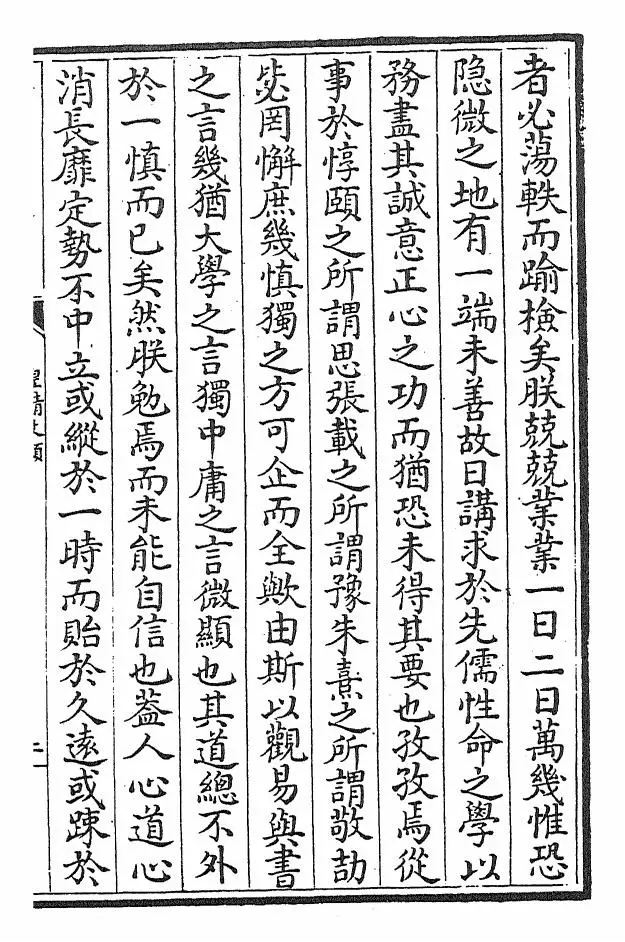 者必蕩軼而踰檢矣朕兢兢業業一日二日萬幾惟恐
隐微之地有一端未善故日講求於先儒性命之學以
務盡其誠意正心之功而猶恐未得其要也孜孜焉從
事於惇頤之所謂思張載之所謂豫朱熹之所謂敬劼
毖罔懈庶幾慎獨之方可企而全歟由斯以觀易與書
之言幾猶大學之言獨中庸之言微顯也其道總不外
於一慎而已矣然朕勉焉而未能自信也葢人心道心
消長靡定勢不中立或縱於一時而貽於久遠或踈於
皇清文穎
二